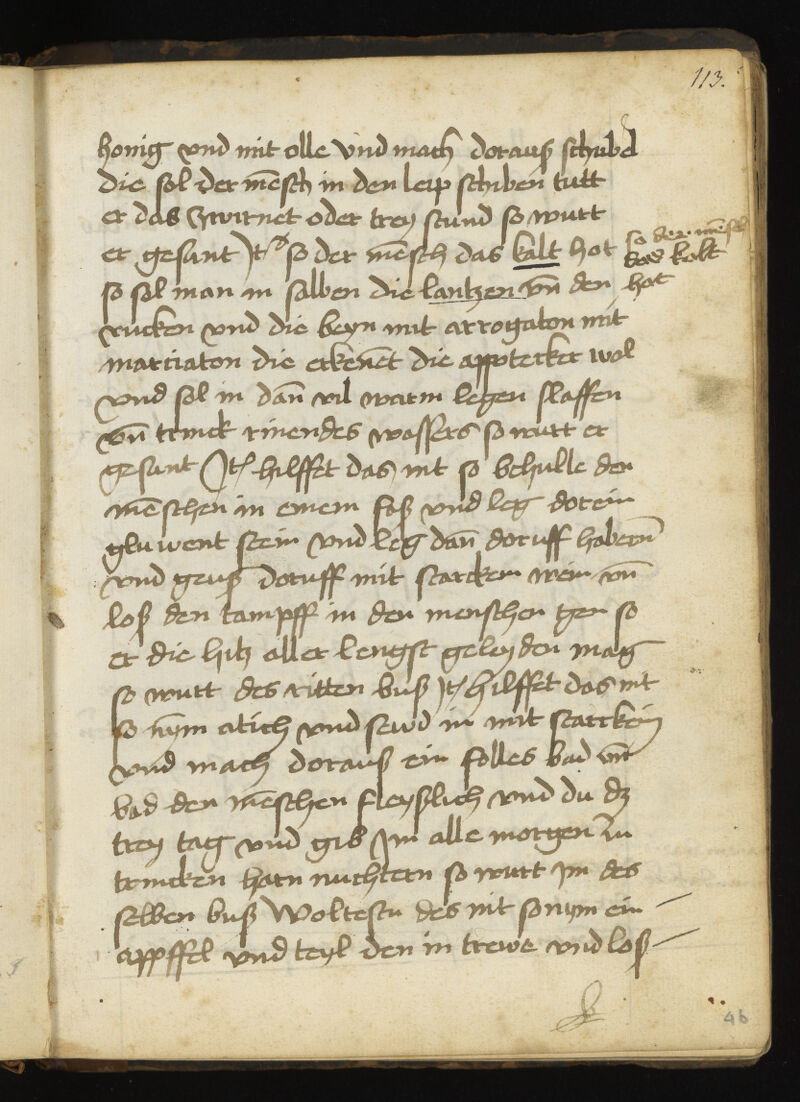 113.
honig vnd mit olle vnd mach dorauß schubel
die sol der mēsch in den leip schiben tutt
er das zwirnet oder trey stund so wurt
er gesunt Jtē so der mēsch das kalt hot
so der mēsch
das kolt
hot
so sol man in salben die lantzen vñ den
rucken vnd die beyn mit arrogaton mit
marciaton die erkenēt die appotecker wol
vnd sol in dañ vil warm legen slaffen
vñ trinck rinendes wassers so wurt er
gesunt Jtē hilffet das nit so behulle den
mēschen in einem foß vnd leg dorein
gluwent stein vnd leg dañ doruff habern
vnd geuß doruff mit starckem wein vñ
loß den tampff in den menschen gen so
er die hitz aller lengst geleyden mag
so wurt des ritten buß Jtē hilffet das nit
so nym atich vnd sewd in mit starckein
vnd mach dorauß ein folles bad vñ
bad den mēschen fleyßlich vnd du dz
trey tag vnd gib im alle morgen zu
trincken harn nuchtern so wurt im des
selben buß Woltestu des nit so nym ein
appffel vnd teyl den in trewe vnd loß
46